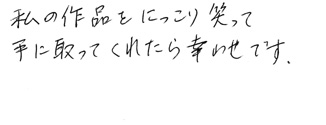 私の作品をにっこり笑って
手に取ってくれたら幸わせです.